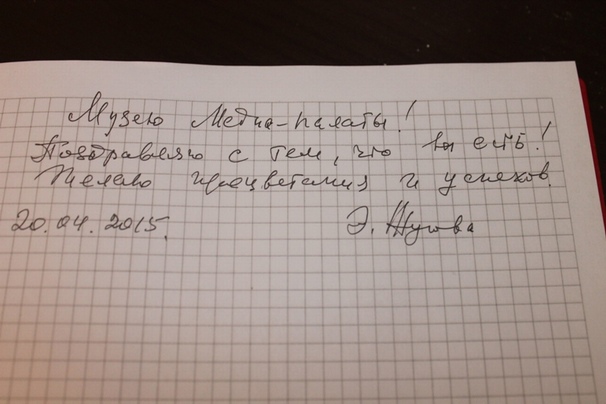 Музею Медиа-палаты!
Поздравляю с тем, что вы есть!
Желаю процветания и успехов.
20.04.2015. Э. Жугова